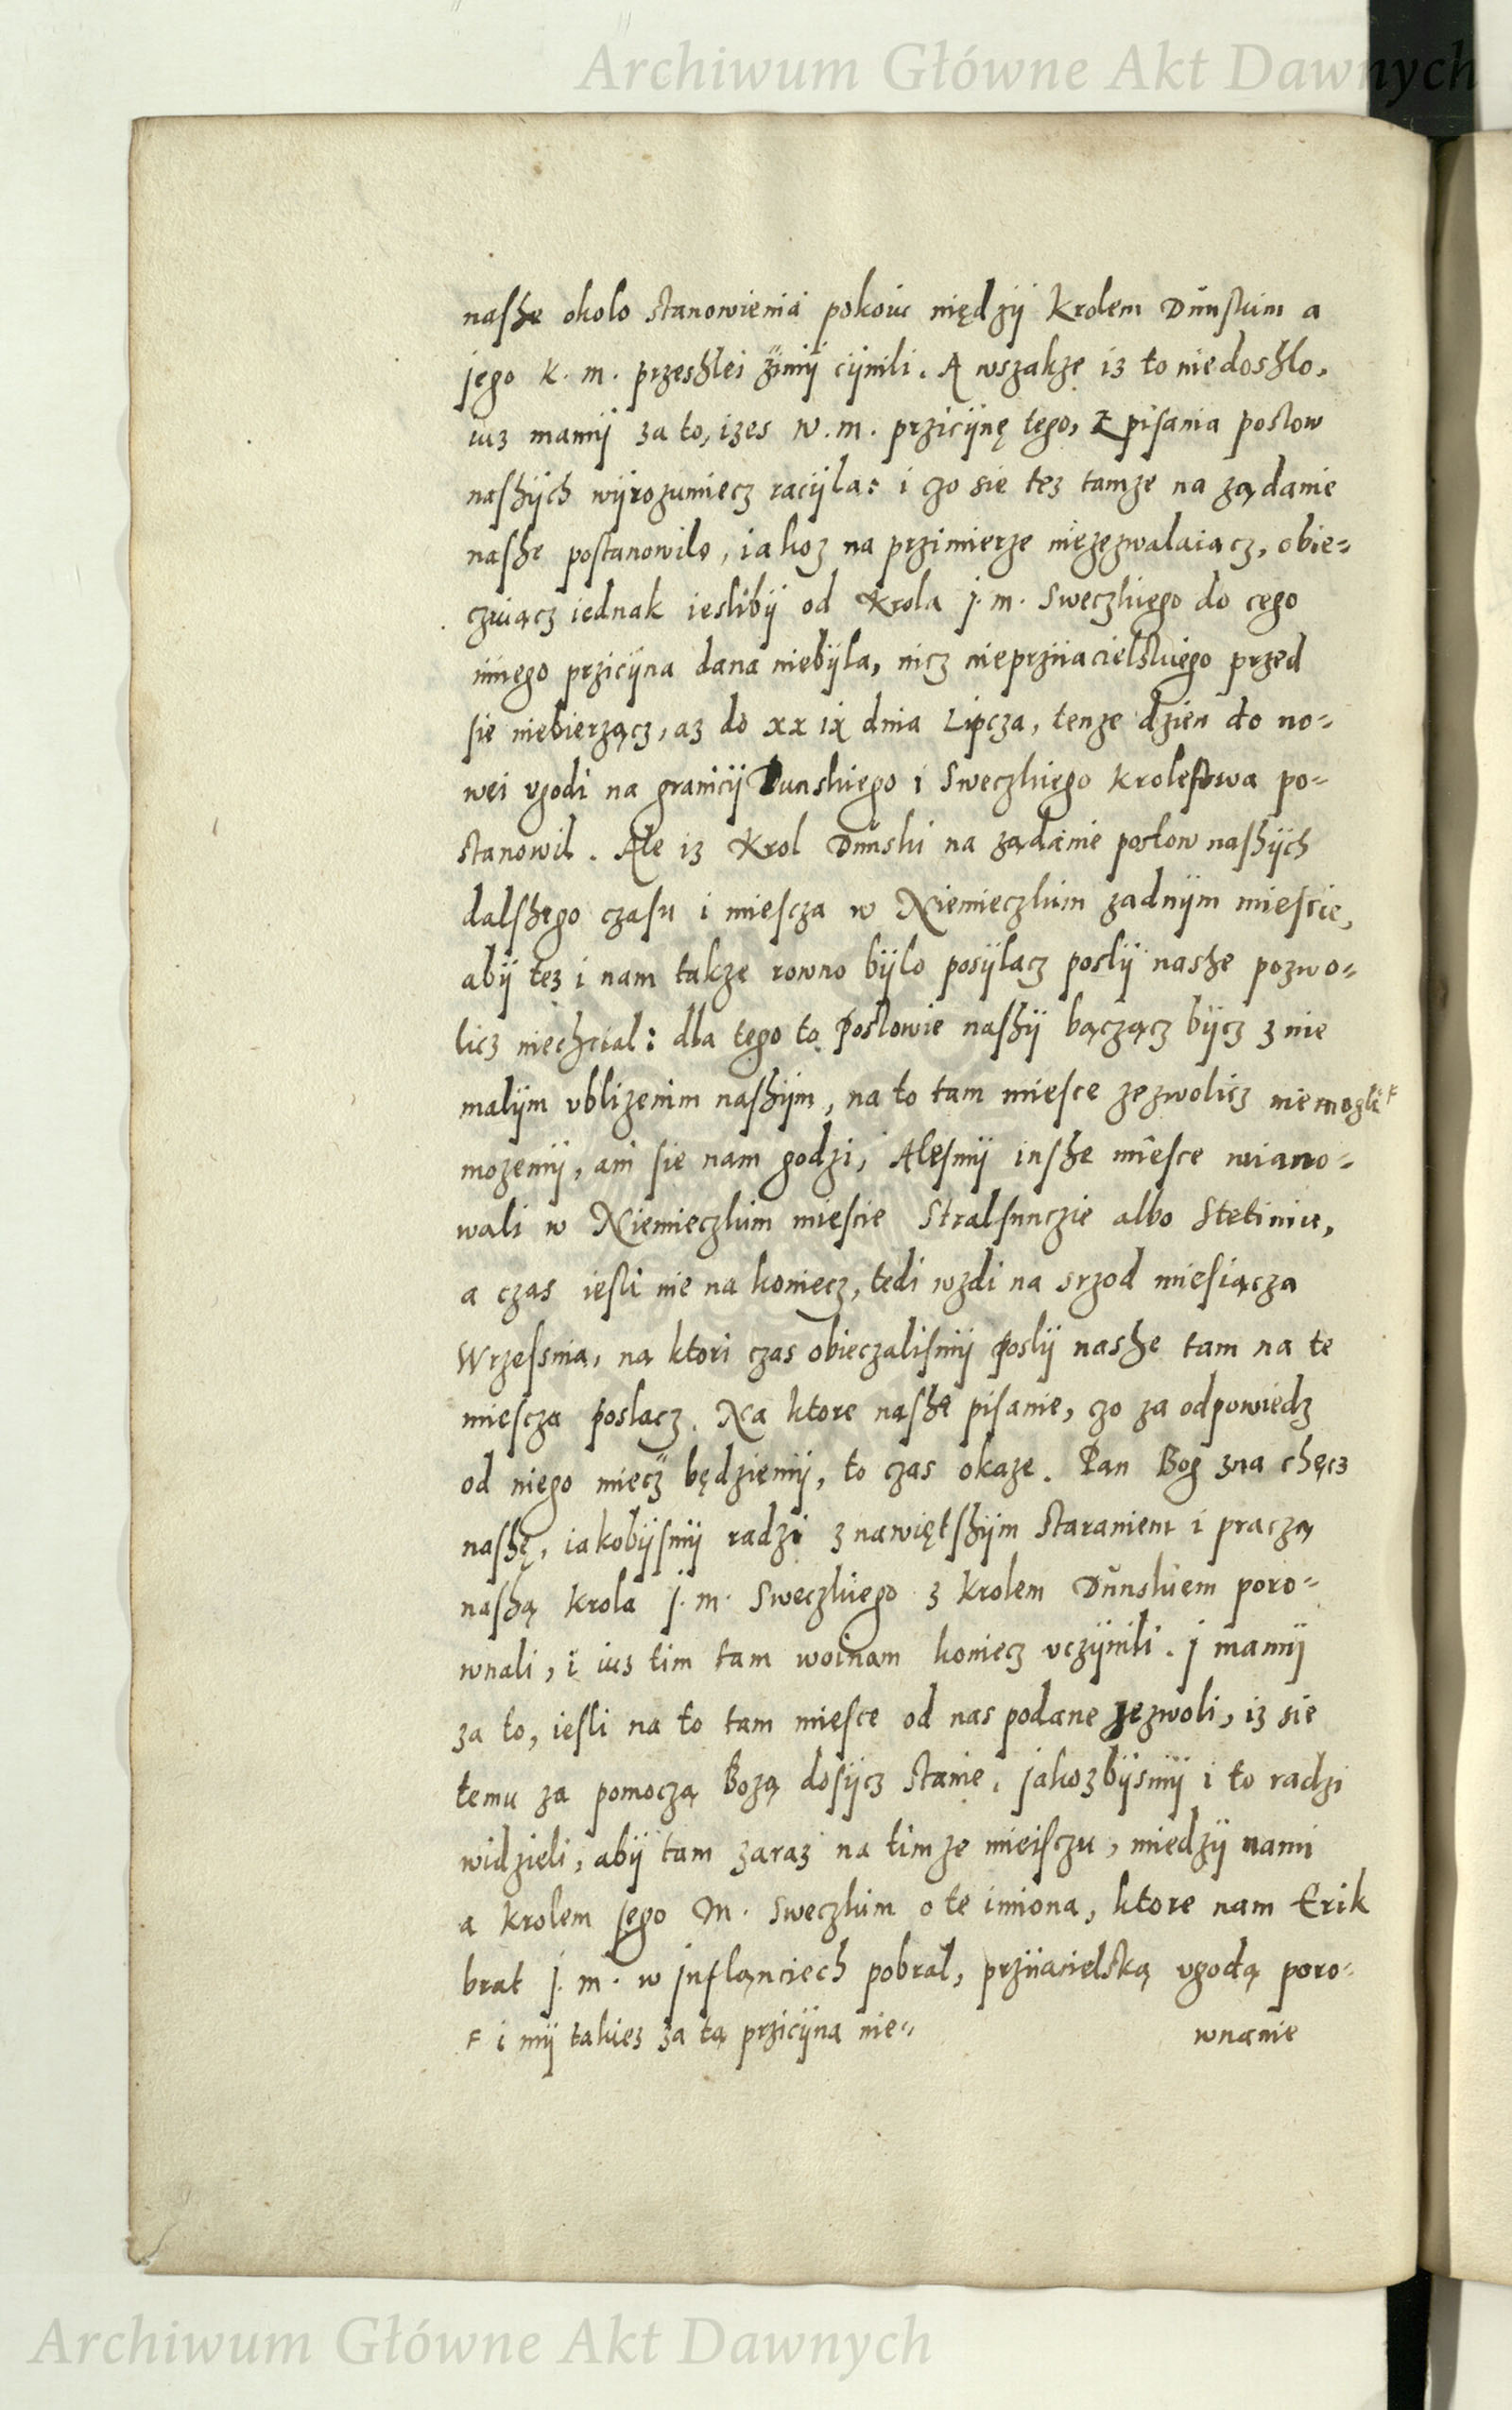 Archiwum Główne Akt Dawnych
nashe okolo stanowienia pokoiu międzÿ Krolem Dunskim a
jego k. m. przeshlei zimÿ cÿnili. A wszakze iz to niedoshlo,
iuz mamÿ za to, izes W. m. przicÿnę tego, z pisania poslow
nashÿch wÿrozumiecz racÿla: i czo sie tez tamze na ządanie
nashe postanowilo, iakoz na przimierze niezezwalaiącz, obie-
czuiącz iednak ieslibÿ od Krola j. m. Sweczkiego do cego
innego przicÿna dana niebÿla, nicz nieprzÿiacielskiego przed
sie niebierzącz, az do xx ix dnia Lipcza, tenze dzien do no-
wei vgodi na granicÿ Dunskiego i Sweczkiego Krolestwa po-
stanowil. Ale iz Krol Dunski na ządanie poslow nashÿch
dalshego czasu i miescza w Niemieczkim zadnÿm miescie,
abÿ tez i nam takze rowno bÿlo posÿlacz poslÿ nashe pozwo-
licz niechcial: dla tego to Poslowie nashÿ bączącz bÿcz z nie
malÿm vblizenim nashÿm, na to tam miesce zezwolicz niemogli F
mozemÿ, ani sie nam godzi, Alesmÿ inshe miesce miano-
wali w Niemieczkim miescie Stralsunczie albo Stetinie,
a czas iesli nie na koniecz, tedi wzdi na srzod miesiącza
Wrzesnia, na ktori czas obieczalismÿ poslÿ nashe tam na te
miescza poslacz. Na ktore nashe pisanie, czo za odpowiedz
od niego miecz będziemÿ, to czas okaze. Pan Bog zna chęcz
nashę, iakobÿsmÿ radzi z nawiętshÿm staraniem i praczą
nashą Krola j. m. Sweczkiego z Krolem Dunskiem poro-
wnali, i ius tim tam woinam koniecz vczÿnili. j mamÿ
za to, iesli na to tam miesce od nas podane zezwoli, iz sie
temu za pomoczą Bozą dosÿcz stanie, jakozbÿsmÿ i to radzi
widzieli, abÿ tam zaraz na timze mieisczu, miedzÿ nami
a Krolem jego M. Sweczkim o te imiona, ktore nam Erik
brat j. m. w jnflanciech pobral, przÿiacielską vgodą poro-
F i mÿ takiez za tą przicÿną nie-
wnanie
Archiwum Główne Akt Dawnych